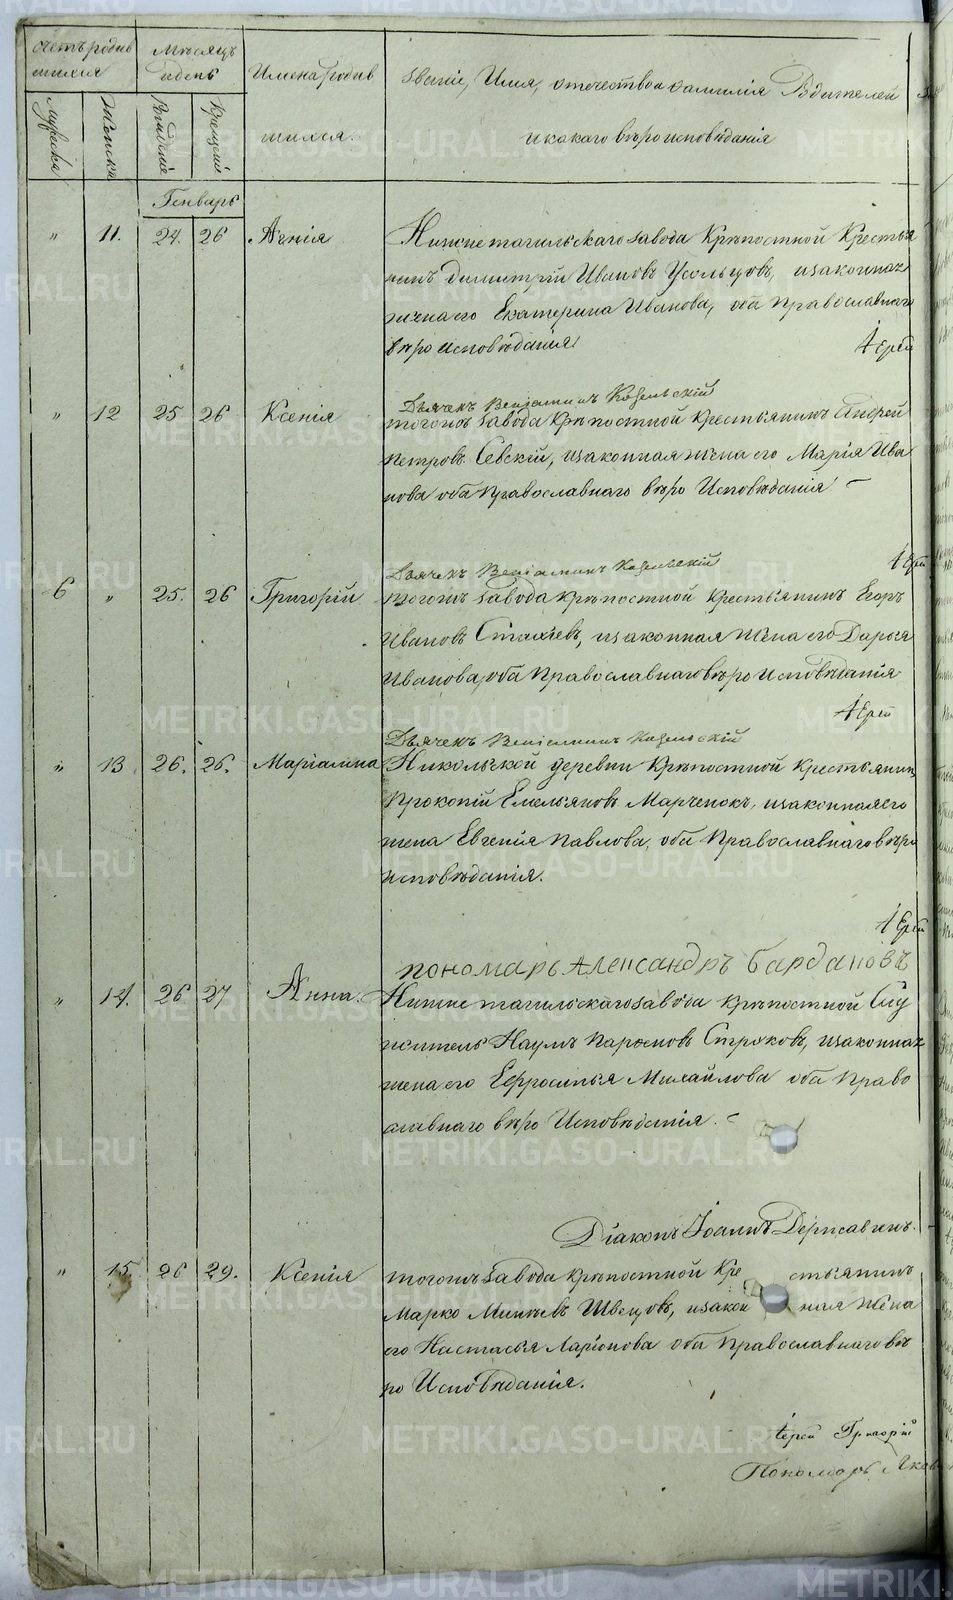 Счетъ родив
шихся
Мѣсяцъ
и день
Имена родив
шихся.
Званіе, Имя, отчество и фамилія Родителей
и какаго вѣроисповѣданія
Мужеска
Женска
Рожденія
Крещенія
Генварь
" 11. 24. 26 Агнія Нижнетагильскаго завода Крѣпостной Крестья
нинъ Димитрій Ивановъ Усольцовъ, и законная
жена его Екатерина Иванова, оба Православнаго
вѣроисповѣданія.
Іерей
Дьячекъ Веніаминъ Козельскій
" 12 25 26 Ксенія тогожъ завода Крѣпостной Крестьянинъ Андрей
Петровъ Севскій, и законная жена его Марія Ива
нова оба Православнаго вѣроисповѣданія
Іерей
Дьячекъ Веніаминъ Козельскій
6 " 25. 26 Григорій тогожъ завода крѣпостной крестьянинъ Егоръ
Ивановъ Стахіевъ, и законная жена его Дарья
Иванова, оба Православнаго вѣроисповѣданія
Іерей
Дьячекъ Веніаминъ Козельскій
" 13 26. 26. Маріамна Никольской деревни Крѣпостной крестьянинъ
Прокопій Емельяновъ Марченокъ, и законная его
жена Евгенія Павлова, оба Православнаго вѣро
исповѣданія.
Іерей
пономарь Александръ Бардановъ
" 14. 26 27 Анна Нижнетагильскаго завода крѣпостной Слу
житель Наумъ Стряковъ, и законная
жена его Ефросинья Михайлова оба Право
славнаго вѣроисповѣданія.
Діаконъ Іоаннъ Державинъ.
" 15. 26 29. Ксенія тогожъ завода крѣпостной Крестьянинъ
Марко Швецовъ, и законная жена
его Настасья Ларіонова оба Православнаго вѣ
роисповѣданія.
Іерей Григорій
Пономарь Яков
METRIKI.GASO-URAL.RU